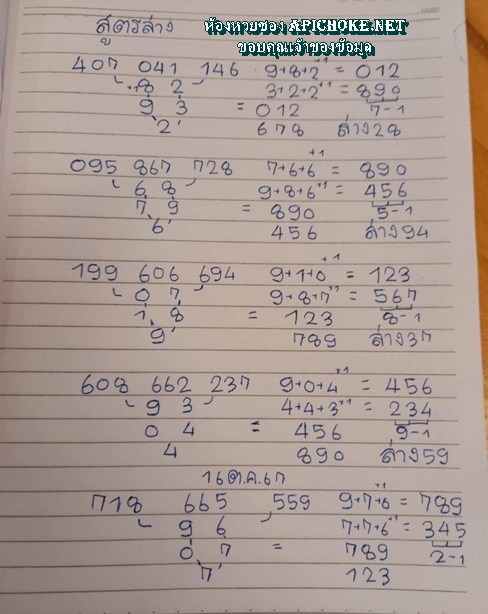 ห้องหวยซอง APICHOKE.NET
ขอบคุณเจ้าของข้อมูล
สูตรล่าง
407 041 146 9+8+2+1 = 012
8 2 3+2+2+1 = 890
9 3 = 012 7-1
2 678 ล่าง28
095 867 728 7+6+6+1 = 890
6 8 9+8+6+1 = 456
7 9 = 890 5-1
6 456 ล่าง94
199 606 694 9+1+0+1 = 123
0 7 9+8+7+1 = 567
1 8 = 123 8-1
9 789 ล่าง37
608 662 237 9+0+4+1 = 456
9 3 4+4+3+1 = 234
0 4 = 456 9-1
4 890 ล่าง59
16ต.ค.67
718 665 559 9+7+6+1 = 789
9 6 7+7+6+1 = 345
0 7 = 789 2-1
7 123